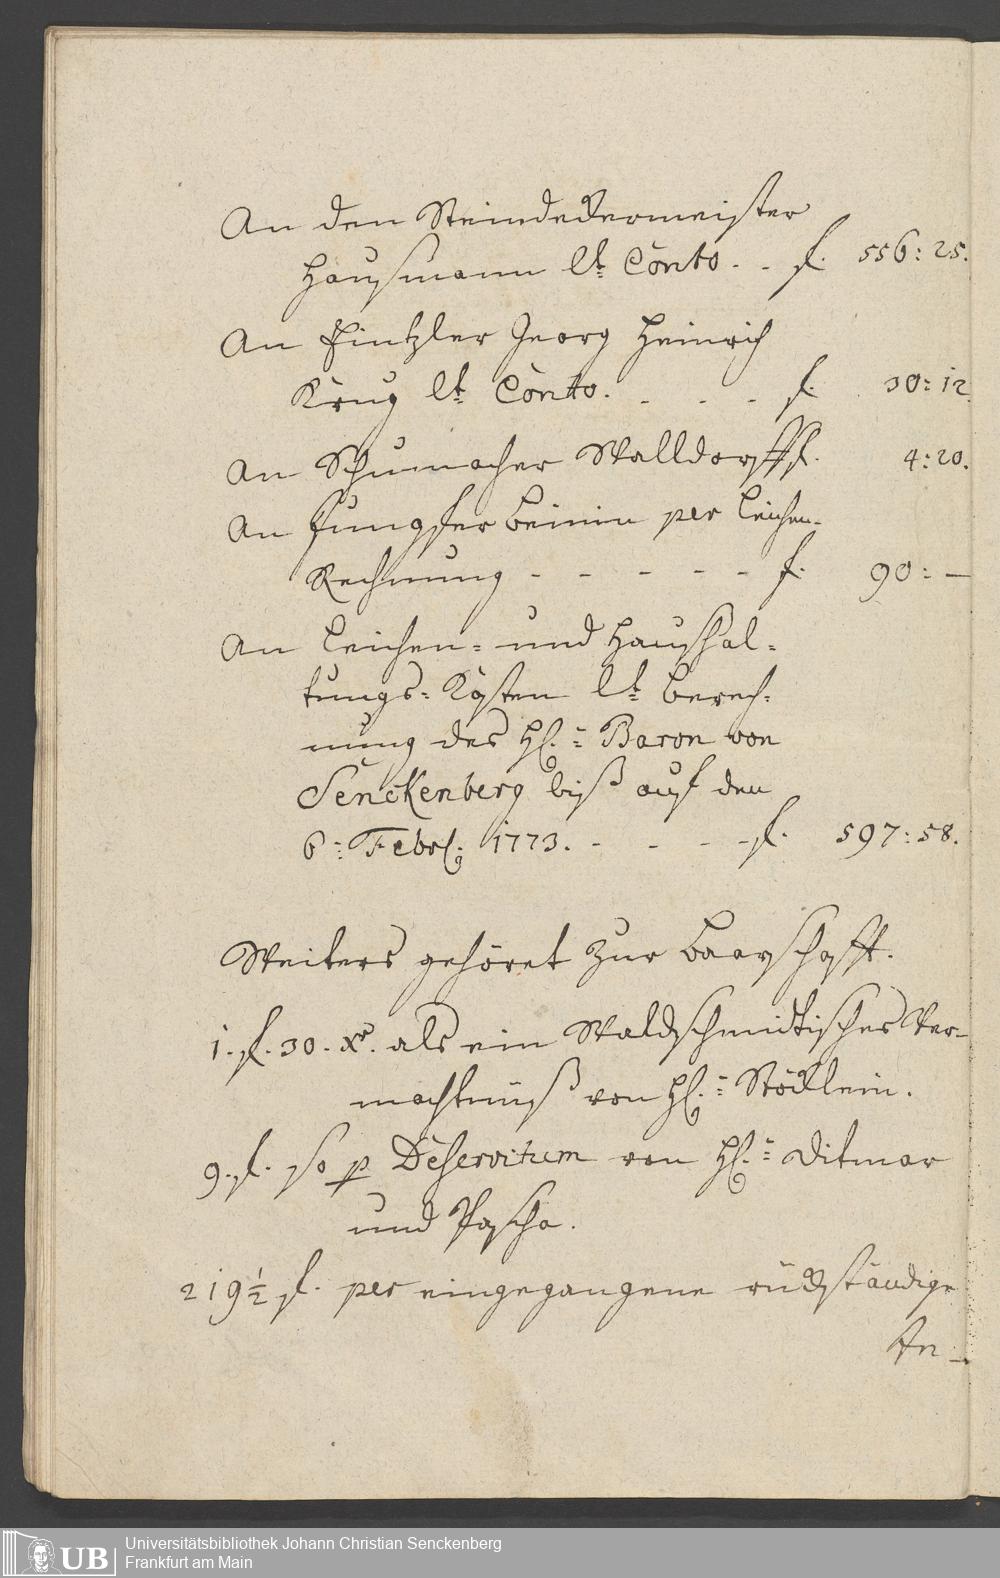 An den Steindeckermeister
Haussmann lt. Conto. - f. 556: 25.
An Fintzler Georg Heinrich
Krug lt. Conto. - - - f. 30: 12.
An Schumacher Walldorff f. 4: 20.
An Jungfer Beinin per Leichen-
Rechnung - - - - - f. 90: —
An Leichen- und Haushal-
tungs-Kosten lt. Berech-
nung des H. Baron von
Senckenberg biß auf den
6. Febr. 1773. - - - - f. 597: 58.
Weiters gehöret zur Baarschafft.
1. f. 30. Xr. als ein Waldschmidtisches Ver-
mächtnüß von H. Stöcklein.
9. f. so p Deservitum von H. Ditmar
und Pascha.
219½ f. per eingegangene rückständige
An-
Universitätsbibliothek Johann Christian Senckenberg
Frankfurt am Main
UB